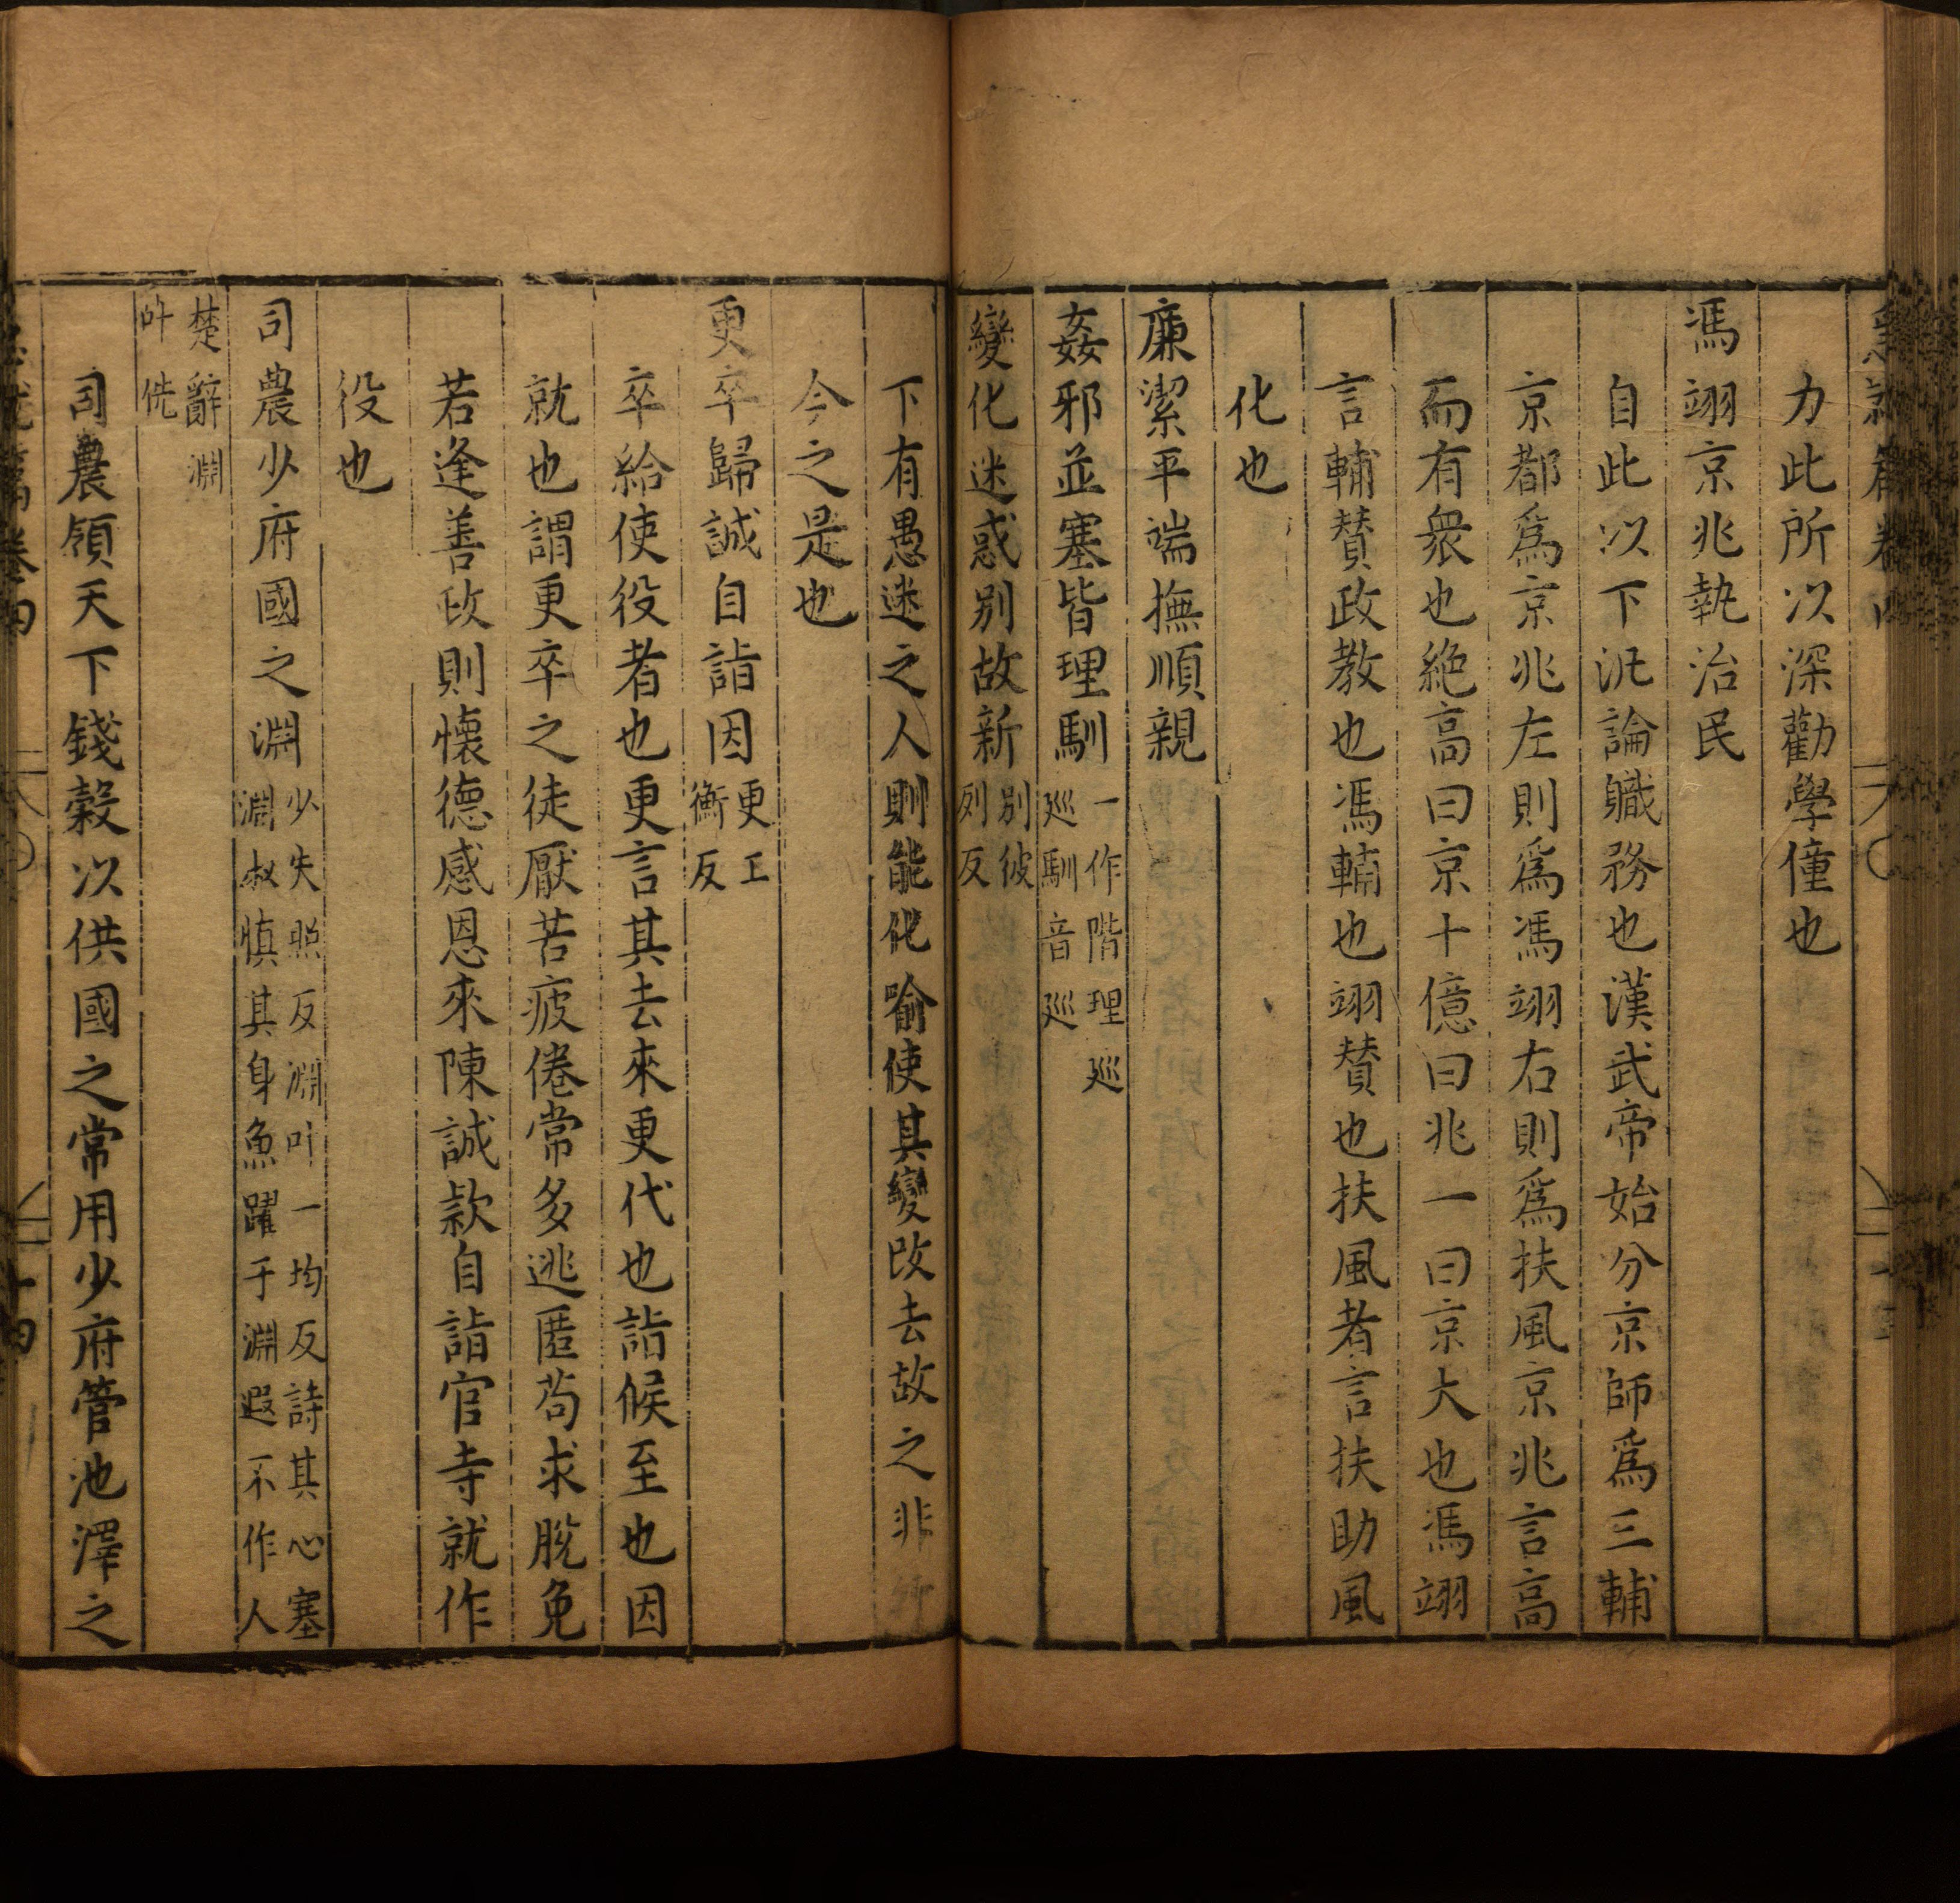 力此所以深勸學僮也
馮翊京兆執治民
自此以下汎論職務也漢武帝始分京師爲三輔
京都爲京兆左則爲馮翊右則爲扶風京兆言高
而有衆也絶高曰京十億曰兆一曰京大也馮翊
言輔賛政教也馮輔也翊賛也扶風者言扶助風
化也
廉潔平端撫順親
姦邪並塞皆理馴一作階理巡
巡馴音巡
變化迷惑别故新别彼
列反
下有愚迷之人則能化喻使其變改去故之非
今之是也
更卒歸誠自詣因更工
衡反
卒給使役者也更言其去來更代也詣候至也因
就也謂更卒之徒厭苦疲倦常多逃匿苟求脫免
若逢善政則懷德感恩來陳誠款自詣官寺就作
役也
司農少府國之淵少失照反淵叶一均反詩其心塞
淵叔慎其身魚躍于淵遐不作人
楚辭淵
叶侁
司農領天下錢穀以供國之常用少府管池澤之
急就篇卷四
十四